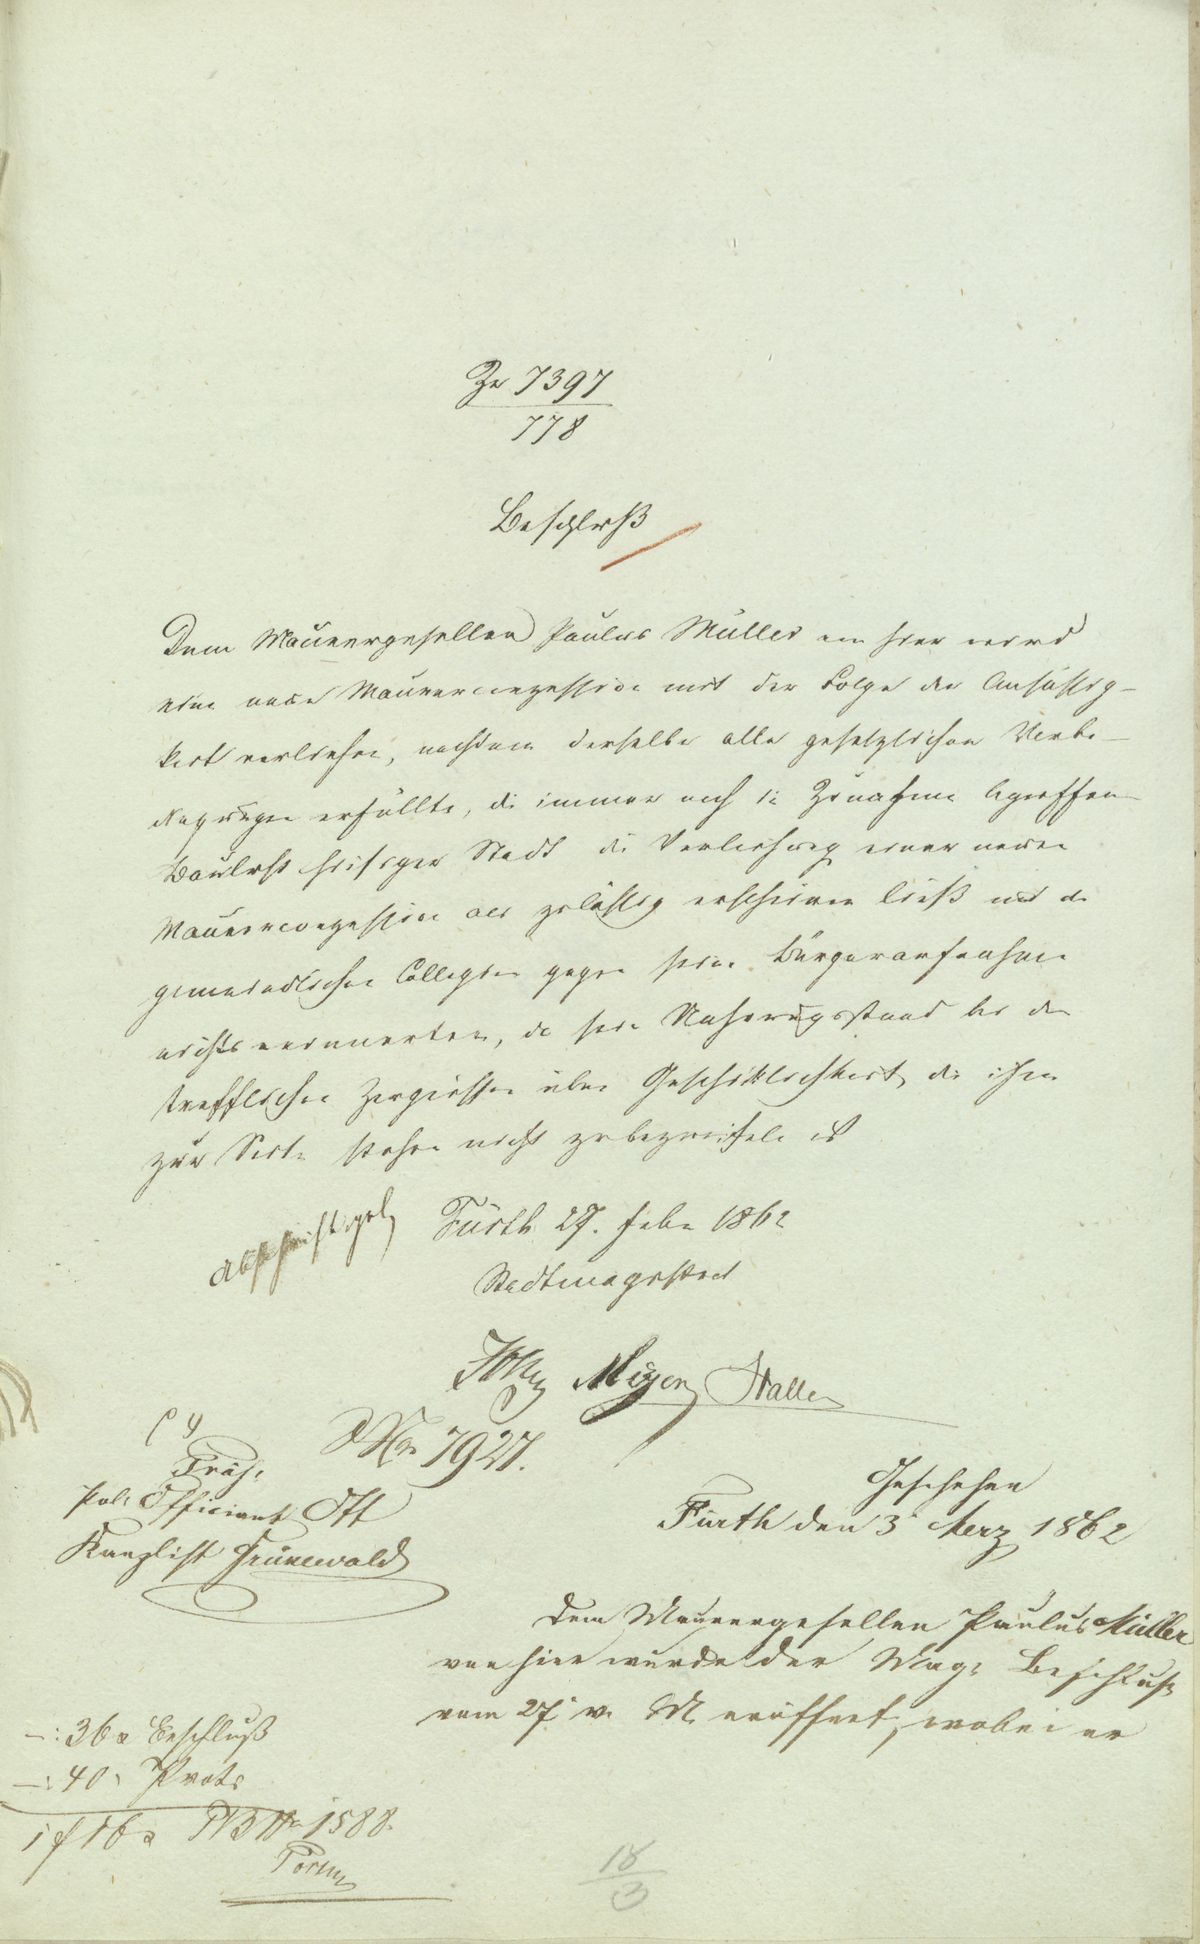 Zu 7397
778
Beschluß
Dem Maurergesellen Paulus Müller von hier wird
eine neue Maurerconzession mit der Folge der Ansässig-
keit verliehen, nachdem derselbe alle gesetzlichen Vorbe-
dingungen erfüllte, die immer noch in Zunahme begriffene
Baulust hiesiger Stadt die Verleihung einer neuen
Maurerconzession als zulässig erscheinen ließ und die
gemeindlichen Collegien gegen seine Bürgeraufnahme
nichts erinnerten, da sein Nahrungsstand bei den
trefflichen Zeugnissen über Geschicklichkeit, die ihm
zur Seite stehen nicht zu bezweifeln ist
Fürth 27. Febr 1862
Stadtmagistrat
Meyer Haller
No 7927.
Präs:
Pol: Officiant Ott
Kanzlist Grünewald
Geschehen
Fürth den 3 Merz 1862
Dem Maurergesellen Paulus Müller
von hier wurde der Mag: Beschluß
vom 27 v. M. eröffnet, wobei er
—: 36 x Beschluß
—: 40 x Prot:
1 f 16 x 1588.
18
3